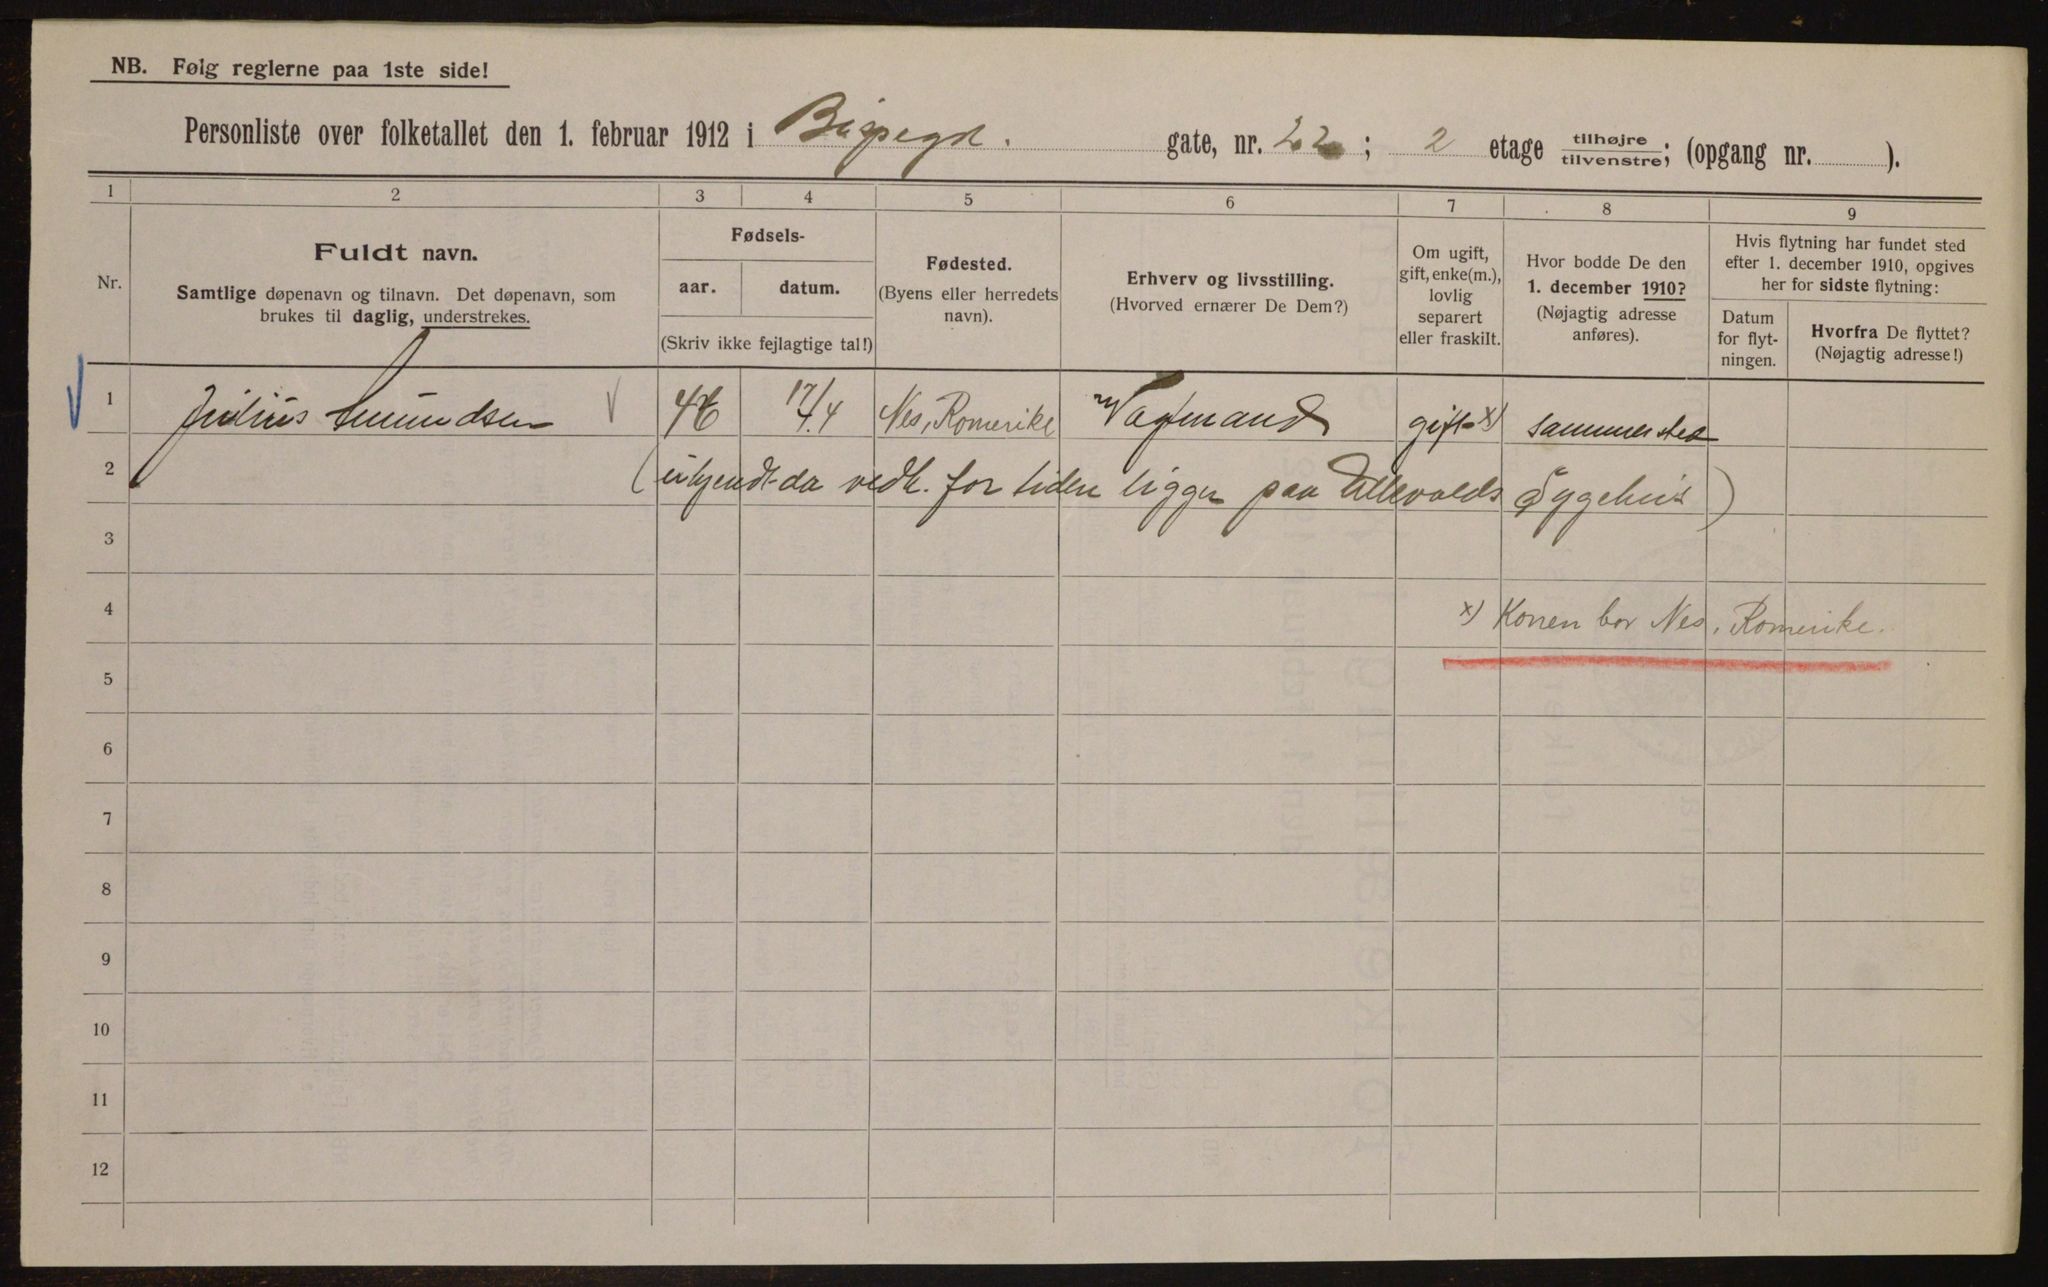 NB. Følg reglerne paa 1ste side!
Personliste over folketallet den 1. februar 1912 i Bispegt. gate, nr. 22; 2 etage tilhøjre tilvenstre; (opgang nr. ).
1 2 3 4 5 6 7 8 9
Nr.
Fuldt navn.
Samtlige døpenavn og tilnavn. Det døpenavn, som
brukes til daglig, understrekes.
Fødsels-
aar. datum.
(Skriv ikke fejlagtige tal!)
Fødested.
(Byens eller herredets
navn).
Erhverv og livsstilling.
(Hvorved ernærer De Dem?)
Om ugift,
gift, enke(m.),
lovlig
separert
eller fraskilt.
Hvor bodde De den
1. december 1910?
(Nøjagtig adresse
anføres).
Hvis flytning har fundet sted
efter 1. december 1910, opgives
her for sidste flytning:
Datum
for flyt-
ningen.
Hvorfra De flyttet?
(Nøjagtig adresse!)
1 Julius Amundsen 17/4 Nes, Romerike gift x) sammested
2 (ukjendt da vedk. for tiden ligger paa Ullevolds Sygehus)
3
4 x) Konen bor Nes, Romerike.
5
6
7
8
9
10
11
12